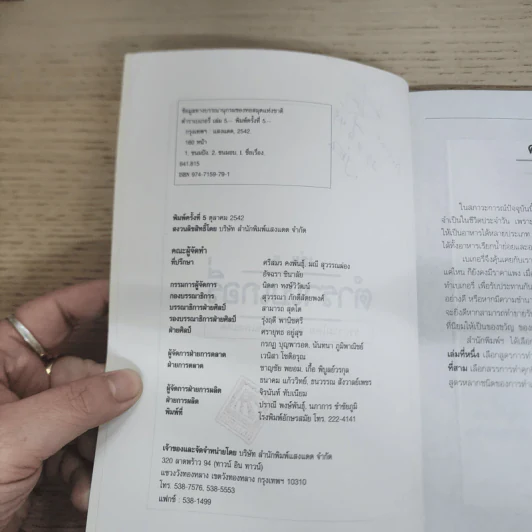 ข้อมูลทางบรรณานุกรมของหอสมุดแห่งชาติ
ตำราเบเกอรี่ เล่ม 5.-- พิมพ์ครั้งที่ 5.--
กรุงเทพฯ : แสงแดด, 2542
180 หน้า
1. ขนมปัง. 2. ขนมอบ. I. ชื่อเรื่อง.
641.815
ISBN 974-7159-79-1
พิมพ์ครั้งที่ 5 ตุลาคม 2542
สงวนลิขสิทธิ์โดย บริษัท สำนักพิมพ์แสงแดด จำกัด
คณะผู้จัดทำ
ที่ปรึกษา ศรีสมร คงพันธุ์, มณี สุวรรณผ่อง
อัจฉรา ชินาลัย
กรรมการผู้จัดการ นิดดา หงษ์วิวัฒน์
กองบรรณาธิการ สุวรรณา
บรรณาธิการฝ่ายศิลป์ สามารถ สุดโต
รองบรรณาธิการฝ่ายศิลป์ รุ่งฤดี พานิชศรี
ฝ่ายศิลป์ ศรายุทธ อยู่สุข
กรกฎ บุญพารอด, นันทนา
ผู้จัดการฝ่ายการตลาด เวนิสา โชติอรุณ
ฝ่ายการตลาด ชาญชัย พยอม,
ธนาคม แก้ววิทย์, ธนวรรณ
ผู้จัดการฝ่ายการผลิต จิรนันท์ ทับเนียม
ฝ่ายการผลิต ปราณี พงษ์พันธุ์, นภาการ ชำชัยภูมิ
พิมพ์ที่ โรงพิมพ์อักษรสมัย โทร. 222-4141
เจ้าของและจัดจำหน่ายโดย บริษัท สำนักพิมพ์แสงแดด จำกัด
320 ลาดพร้าว 94 (ทาวน์ อิน ทาวน์)
แขวงวังทองหลาง เขตวังทองหลาง กรุงเทพฯ 10310
โทร. 538-7576, 538-5553
แฟกซ์ : 538-1499
ในสภาวะการณ์ปัจจุบันนี้
จำเป็นในชีวิตประจำวัน เพราะ
ให้เป็นอาหารได้หลายประเภท
ได้ทั้งอาหารเรียกน้ำย่อยและ
เบเกอรี่จึงคุ้นเคยกับเรา
แต่ไหน ก็ยังคงมีราคาแพง เมื่อ
ทำเบเกอรี่ เพื่อรับประทานกัน
อย่างดี หรือหากมีความชำนาญ
จะยังดีหากสามารถทำขาย
ที่นิยมให้เป็นของขวัญ ของ
สำนักพิมพ์ฯ ได้เลือก
เล่มที่หนึ่ง เลือกสูตรการทำ
ที่สาม เลือกสรรการทำคุกกี้
สูตรหลากชนิดของการทำ